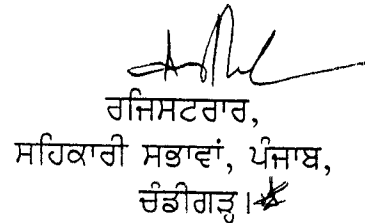 ਰਜਿਸਟਰਾਰ,
ਸਹਿਕਾਰੀ ਸਭਾਵਾਂ, ਪੰਜਾਬ,
ਚੰਡੀਗੜ੍ਹ।